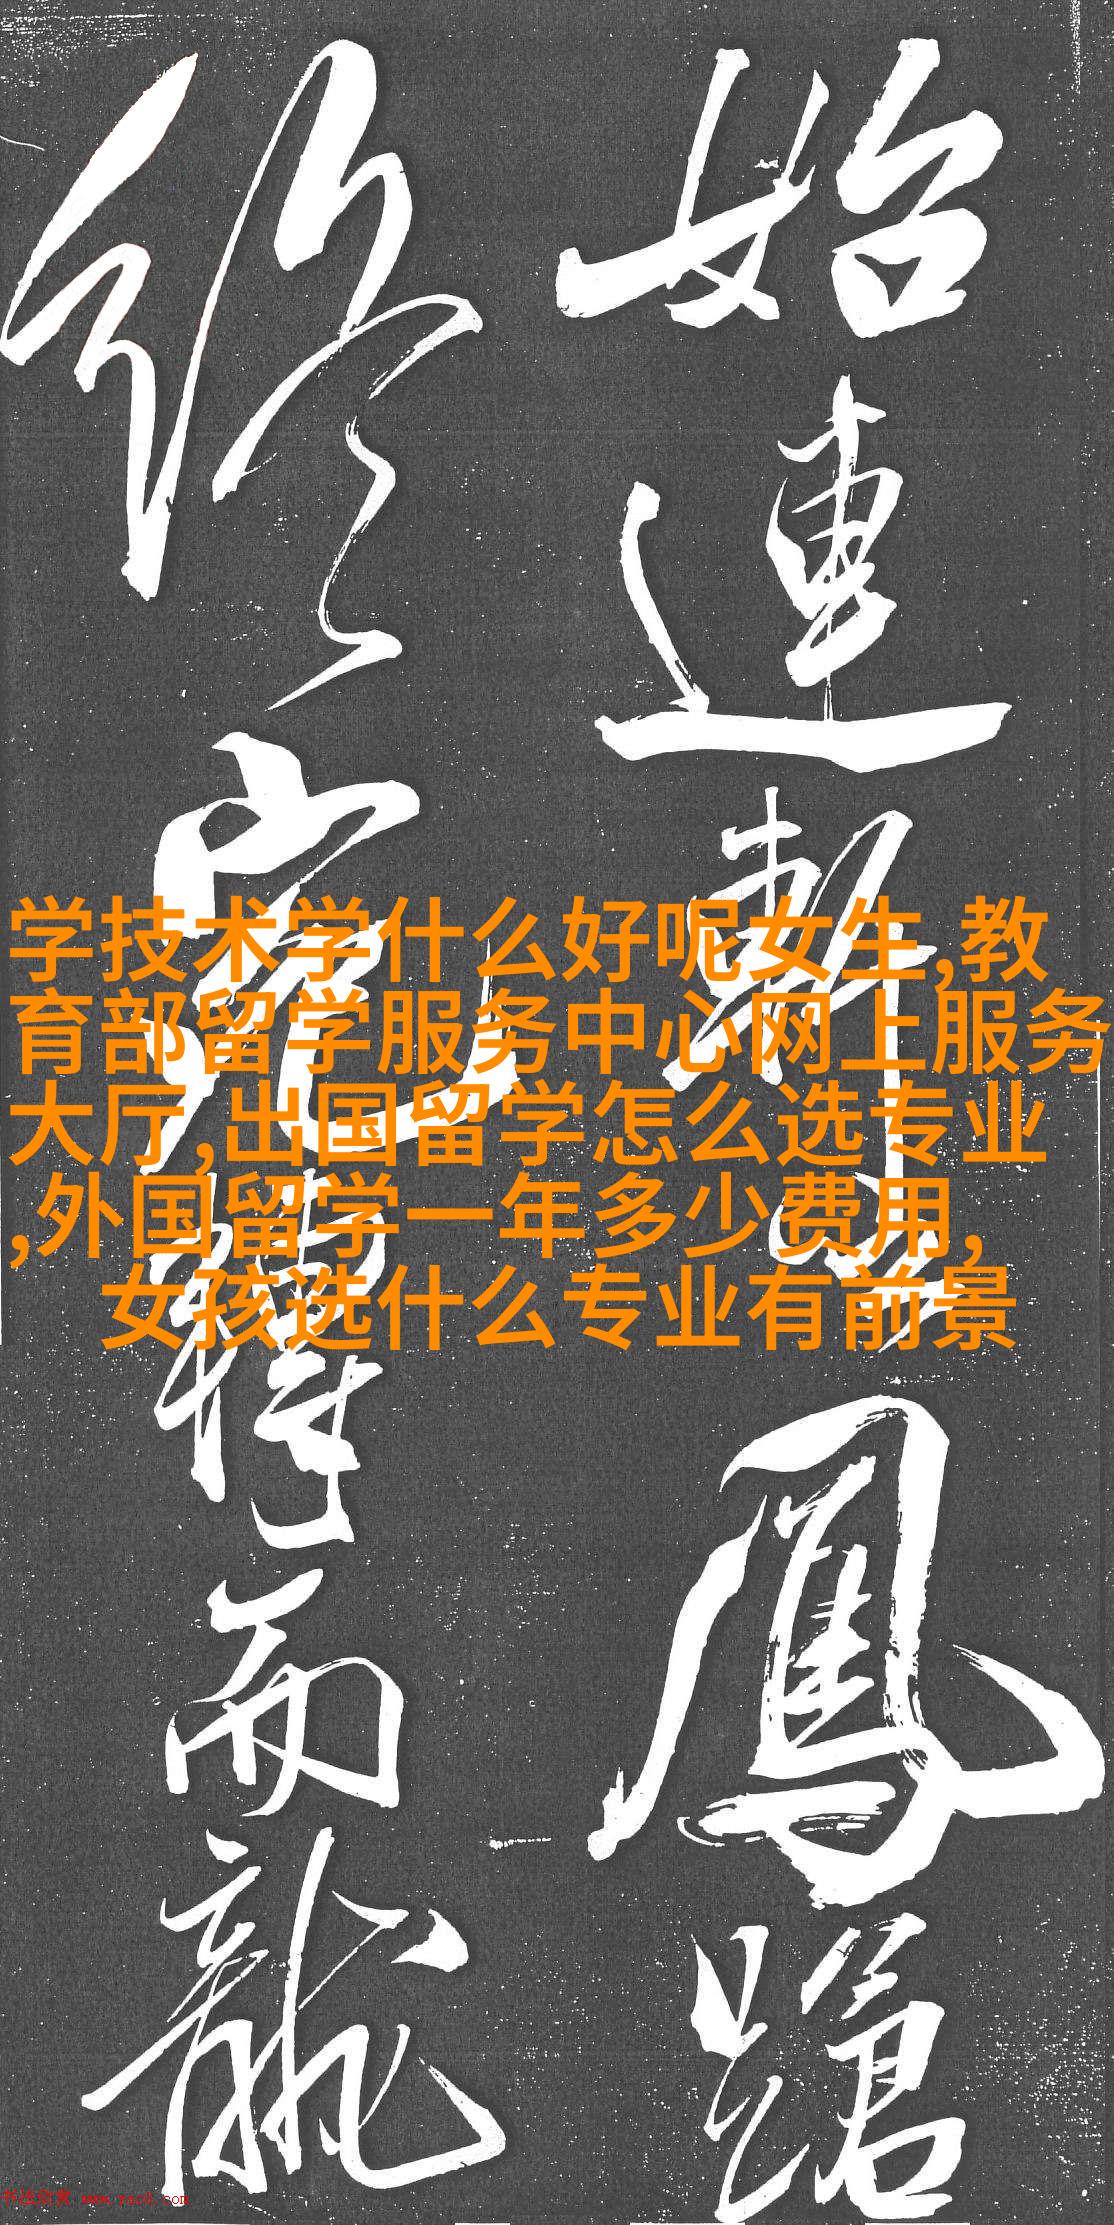 始連軒
鳳蹌
終宛轉而龍
学技术学什么好呢女生,教
育部留学服务中心网上服务
大厅,出国留学怎么选专业
,外国留学一年多少费用,
女孩选什么专业有前景
书法欣赏 www.yac8.com